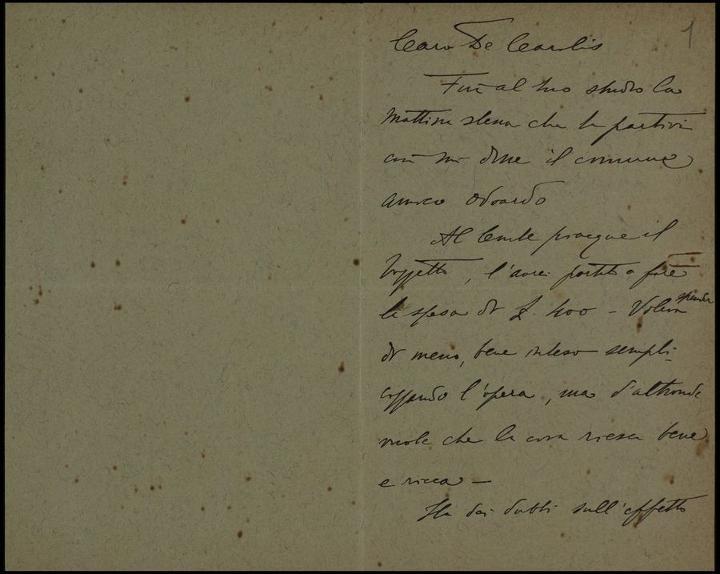 1
Caro De Carolis
Fui al tuo studio la
mattina stessa che tu partivi
così mi disse il comune
amico Odoardo
Al Conte piacque il
bozzetto, l'avrei portato a fare
la spesa di £. 400 – Voleva spendere
di meno, bene inteso sempli-
cizzando l'opera, ma d'altronde
vuole che la cosa riesca bene
e ricca –
Ha dei dubbi sull'effetto